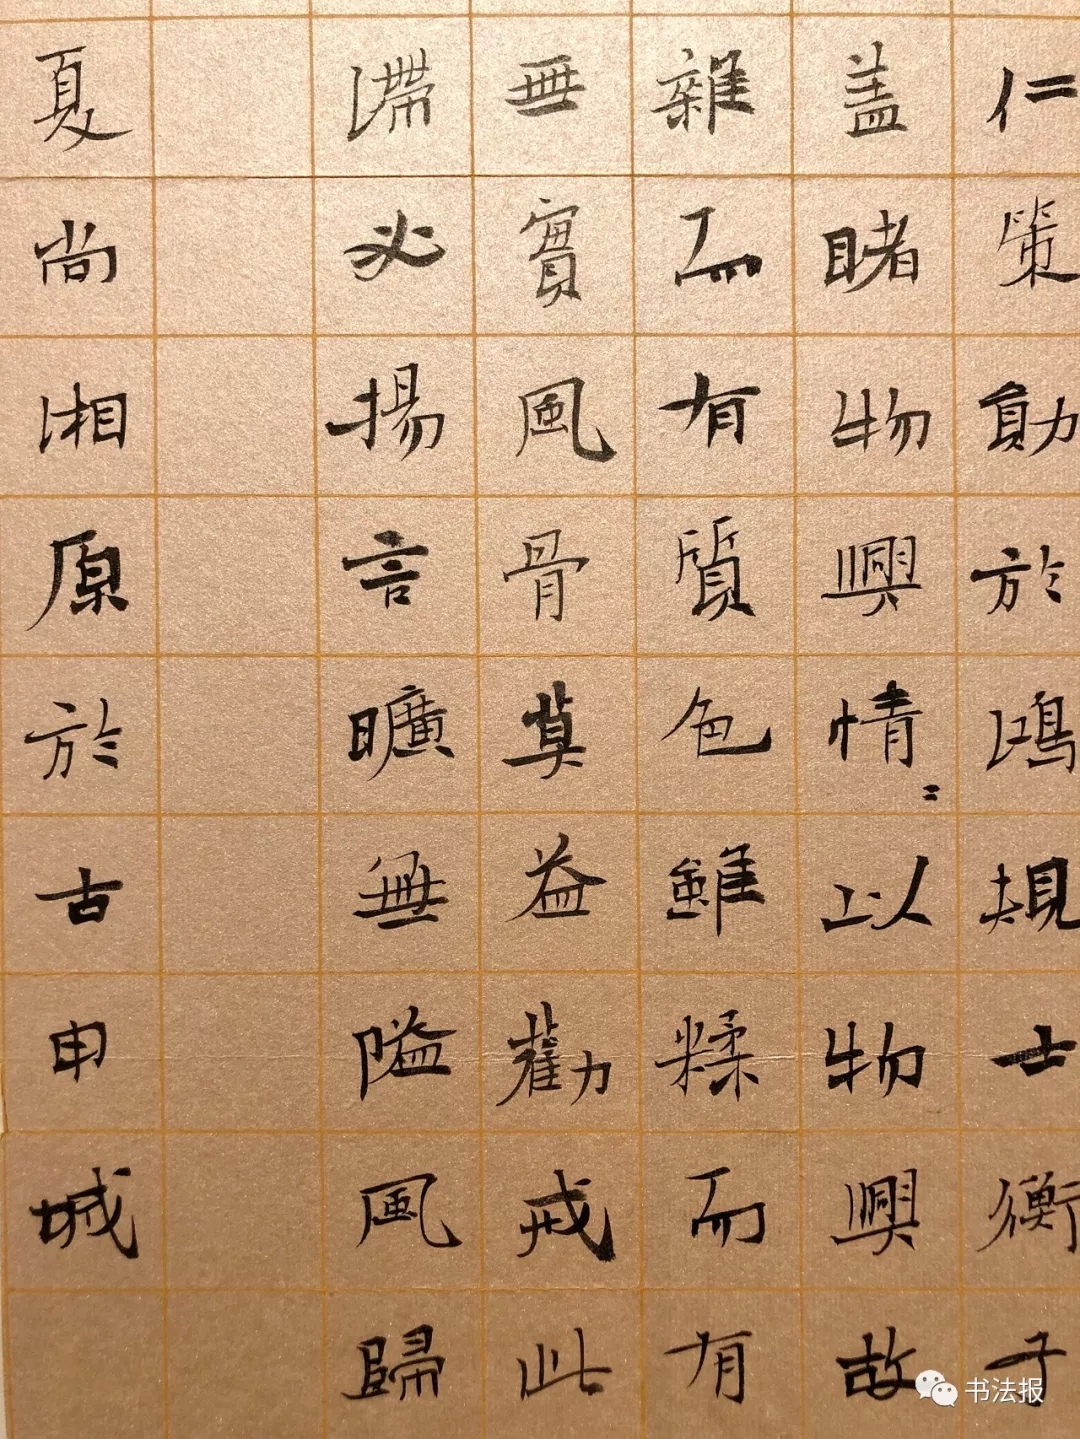 仁策勛於鴻規士衡子
盖睹物興情〻以物興故
雜而有質色雖糅而有
無實風骨莫益勸戒此
滯必揚言曠無隘風歸
夏尚湘原於古申城
书法报